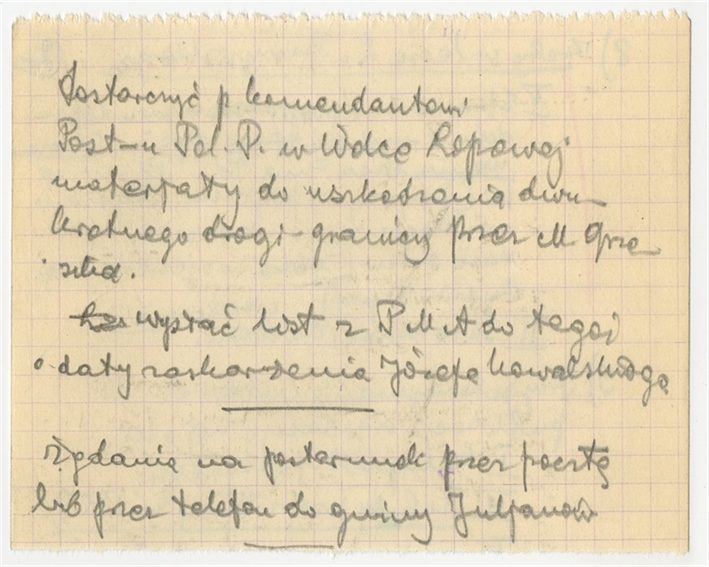 Dostarczyć p. komendantowi
Post-u Pol. P. w Wólce Łopowej
materjały do uszkodzenia dwu-
kratnego drogi-granicy przez M Grze
  
wysłać list z P M A do tegoj
o daty zaskarżenia Józefa Kowalskiego
żądanie na posterunek przez pocztę
lub przez telefon do gminy Juljanów